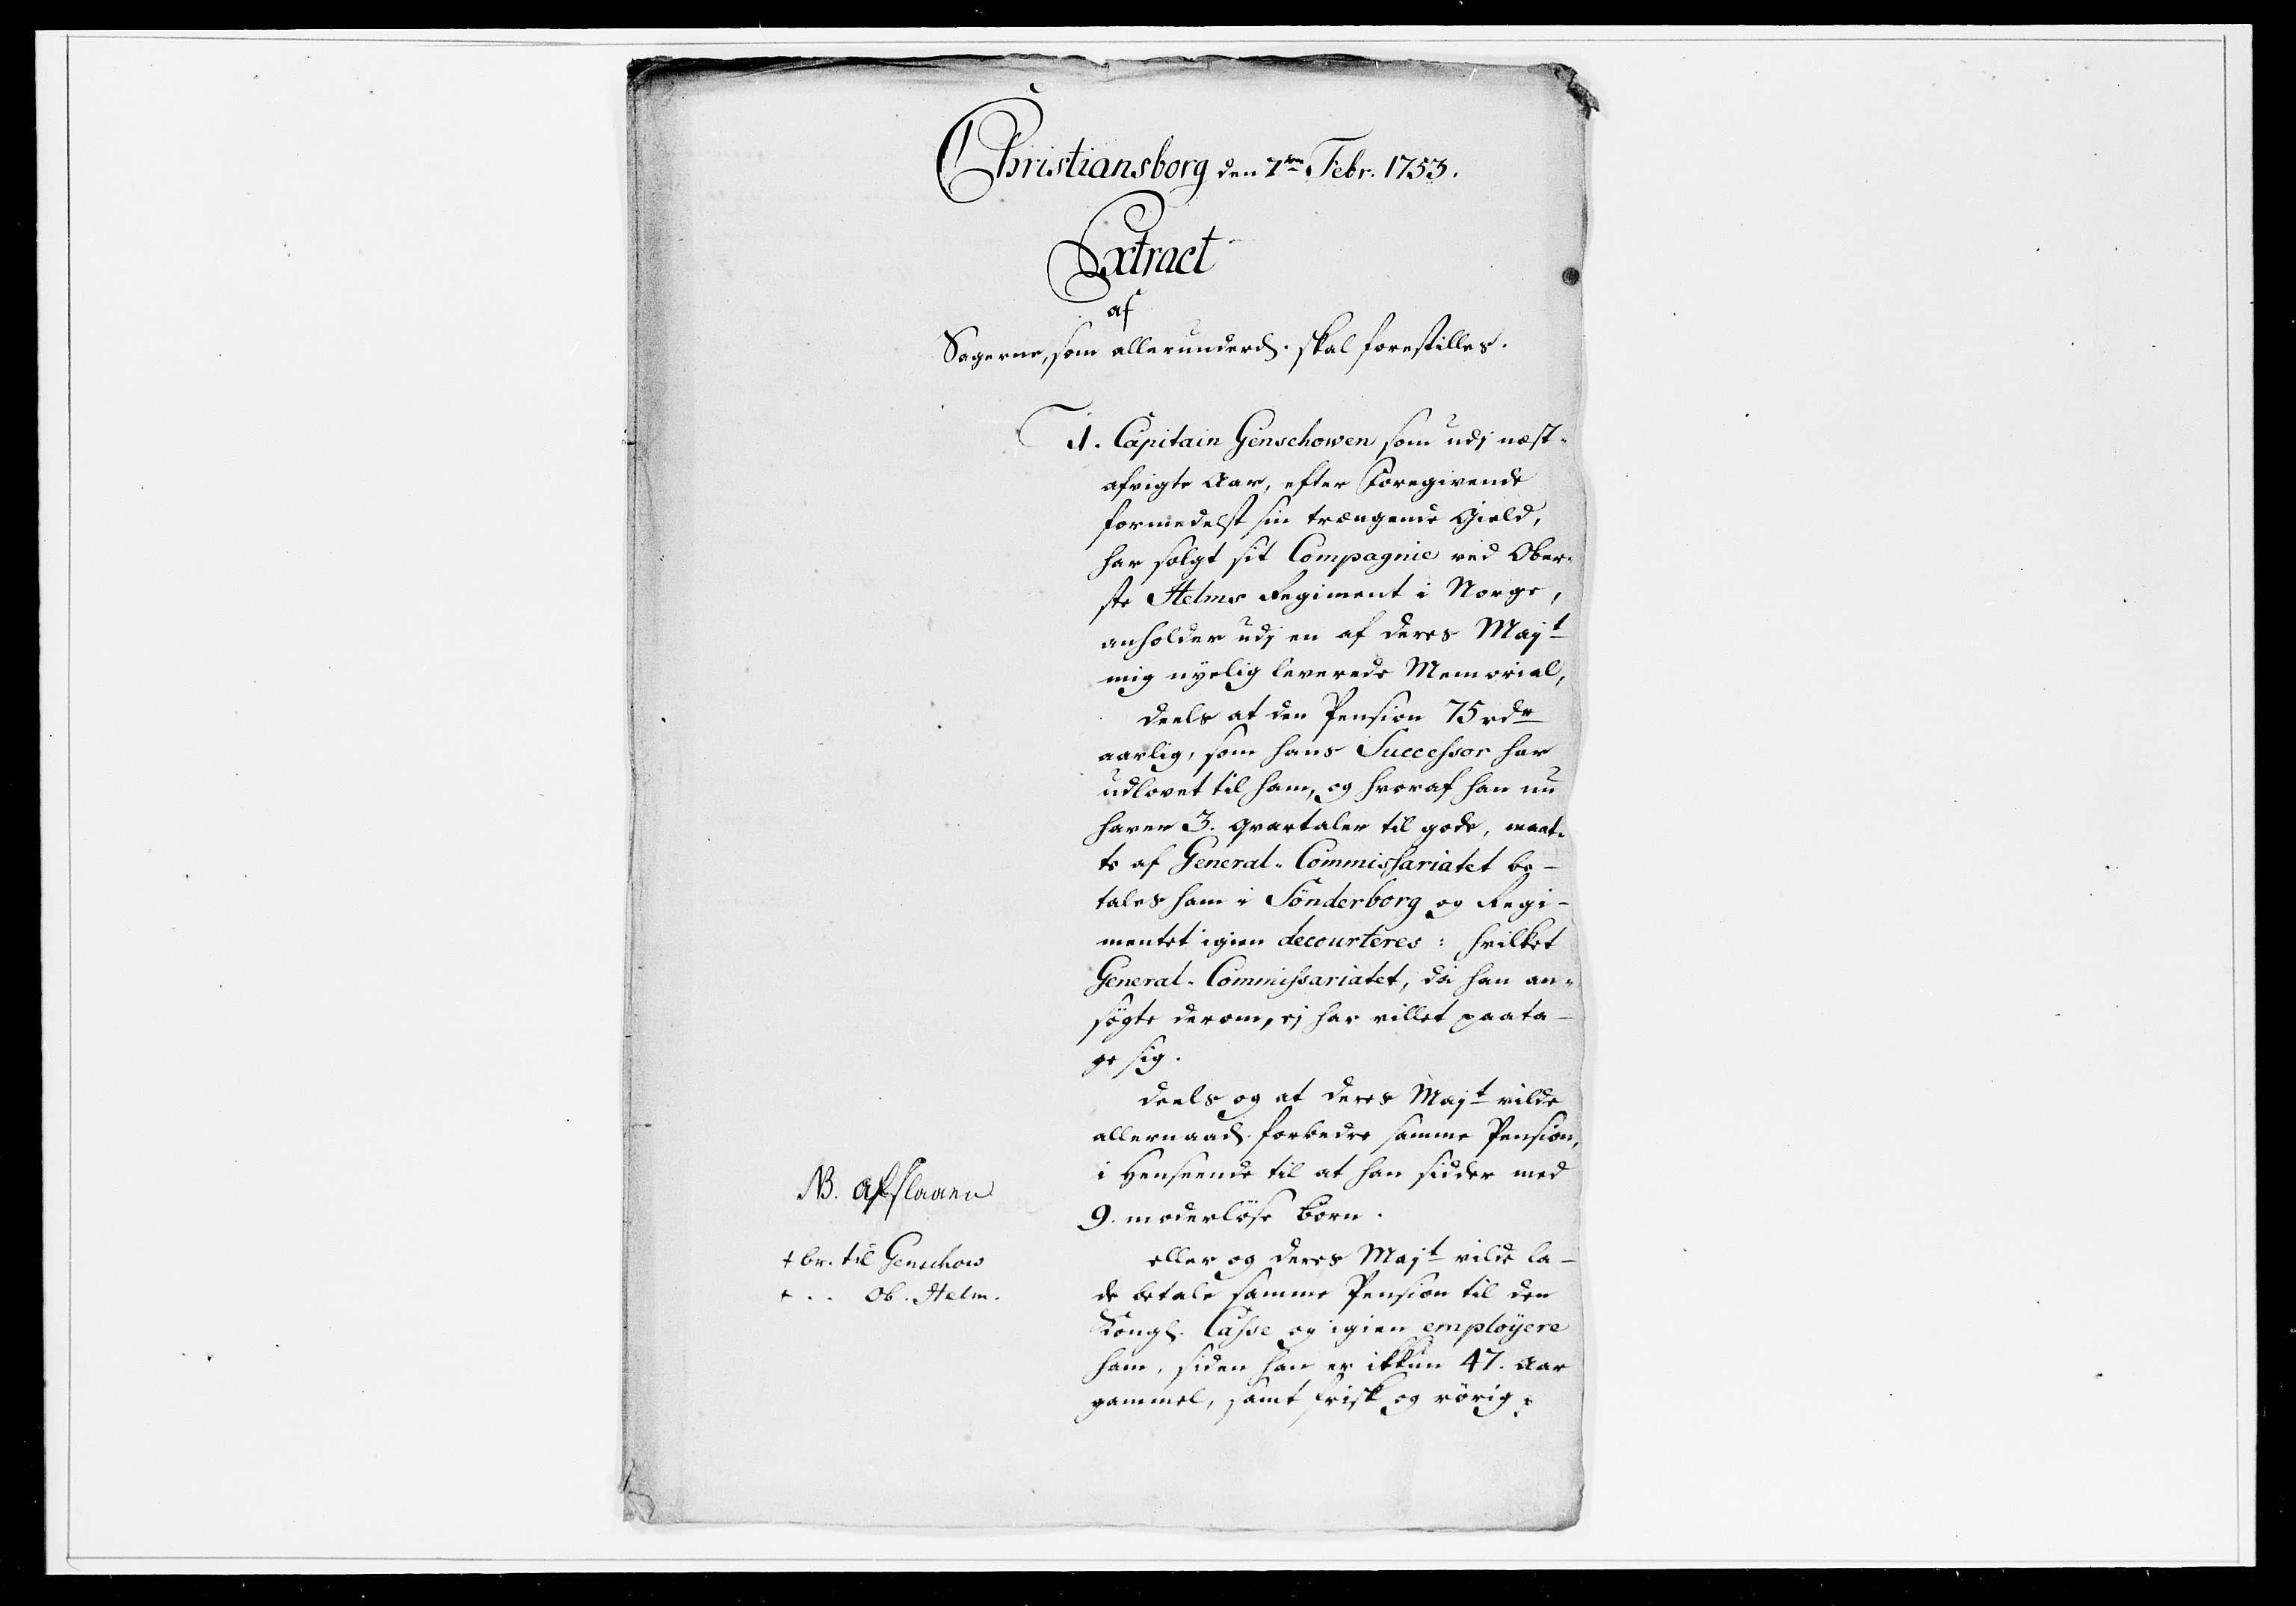 Christiansborg den 7de Febr. 1753.
Extract
af
Sagerne, som allerunderd. skal forestilles.
1. Capitain Genschowen som udj næst-
afvigte Aar, efter Foregivende
formedelst sin trængende Gield,
har solgt sit Compagnie ved Ober-
ste Helms Regiment i Norge,
anholder udj en af Deres Majt
mig nyelig leverede Memorial,
deels at den Pension 75 rdr
aarlig, som hans Successor har
udlovet til ham, og hvoraf han nu
haver 3. qvartaler til gode, maat-
te af General-Commissariatet be-
tales ham i Sönderborg og Regi-
mentet igien decourteres: hvilket
General-Commissariatet, da han an-
søgte derom, ej har villet paata-
ge sig.
deels og at Deres Majt vilde
allernaad. forbedre samme Pension,
i Henseende til at han sidder med
9. moderløse Børn.
eller og Deres Majt vilde la-
de betale samme Pension til den
Kongl. Casse og igien employere
ham, siden han er ikkun 47. Aar
gammel, samt frisk og rørig;
NB. Afslaaen
+ br. til Genschow
+ . . Ob. Helm.